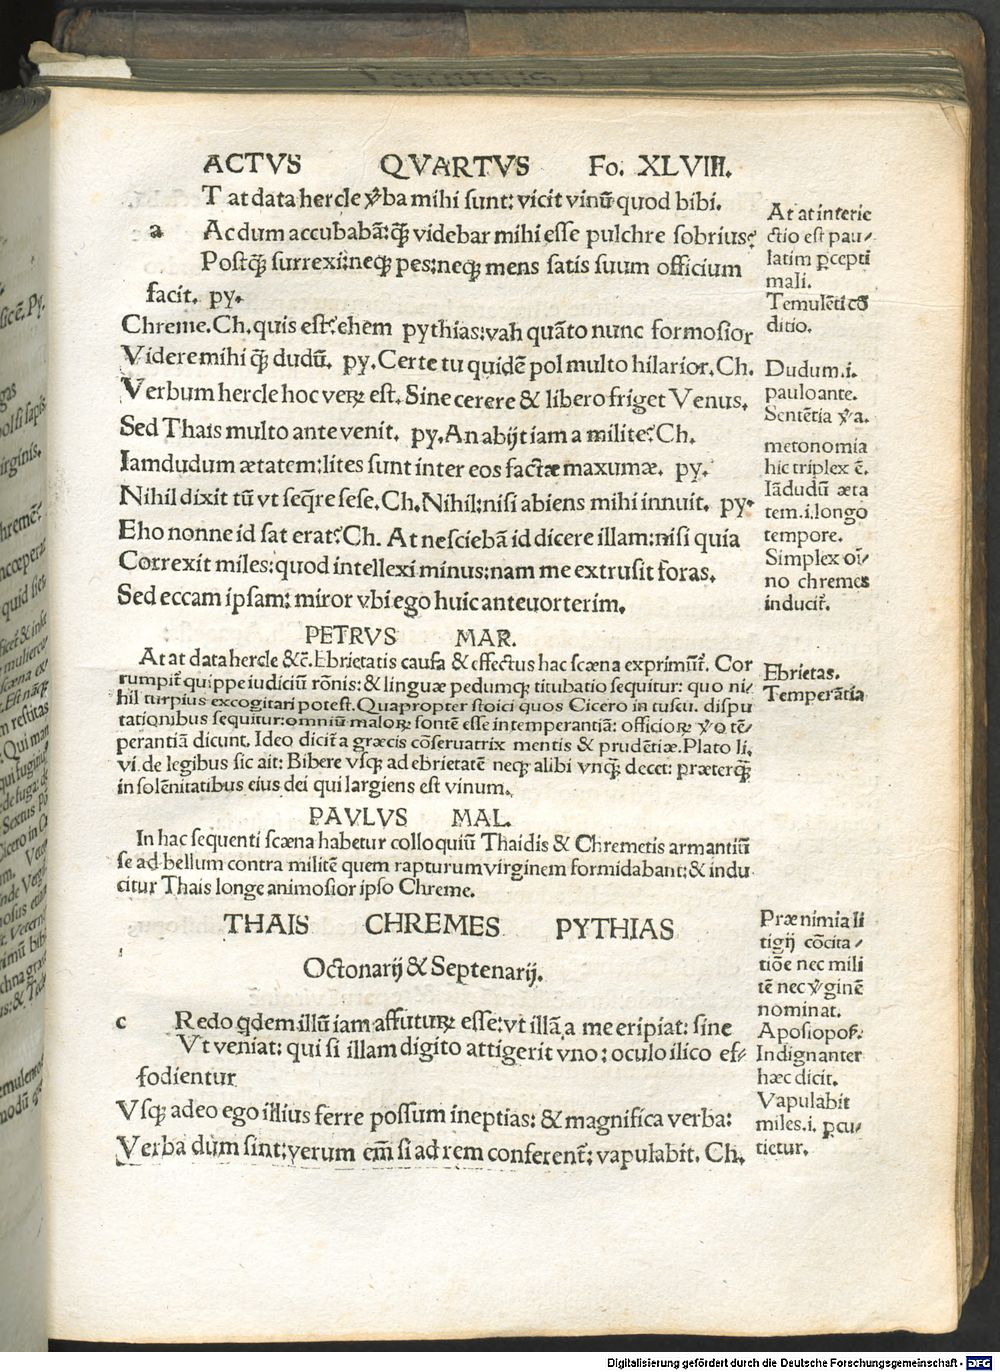 ACTVS QVARTVS Fo. XLVIII.
T at data hercle v̄ba mihi sunt: vicit vinū quod bibi.
a Ac dum accubabā: q̄ videbar mihi esse pulchre sobrius:
Postq̄ surrexi: neq; pes: neq; mens satis suum officium
facit. py.
Chreme. Ch. quis est? ehem pythias: vah quāto nunc formosior
Videre mihi q̄ dudū. py. Certe tu quidē pol multo hilarior. Ch.
Verbum hercle hoc verꝝ est. Sine cerere & libero friget Venus.
Sed Thais multo ante venit. py. An abijt iam a milite? Ch.
Iamdudum ætatem: lites sunt inter eos factæ maxumæ. py.
Nihil dixit tū vt seq̄re sese. Ch. Nihil: nisi abiens mihi innuit. py.
Eho nonne id sat erat? Ch. At nesciebā id dicere illam: nisi quia
Correxit miles: quod intellexi minus: nam me extrusit foras.
Sed eccam ipsam: miror vbi ego huic anteuorterim.
At at interie
ctio est pau/
latim ꝑcepti
mali.
Temulēti cō
ditio.
Dudum .i.
paulo ante.
Sentētia v̄a.
metonomia
hic triplex ē.
Iādudū æta
tem .i. longo
tempore.
Simplex oī/
no chremes
inducit̄.
PETRVS MAR.
At at data hercle &c̄. Ebrietatis causa & effectus hac scæna exprimūt̄. Cor
rumpit̄ quippe iudiciū rōnis: & linguæ pedumq; titubatio sequitur: quo ni/
hil turpius excogitari potest. Quapropter stoici quos Cicero in tuscu. dispu
tationibus sequitur: omniū maloꝝ fontē esse intemperantiā: officioꝝ v̄o tē/
perantiā dicunt. Ideo dicit̄ a græcis cōseruatrix mentis & prudētiæ. Plato li.
vi. de legibus sic ait: Bibere vsq; ad ebrietatē neq; alibi vnq̄ decet: præterq̄
in solēnitatibus eius dei qui largiens est vinum.
Ebrietas.
Temperātia
PAVLVS MAL.
In hac sequenti scæna habetur colloquiū Thaidis & Chremetis armantiū
se ad bellum contra militē quem rapturum virginem formidabant: & indu
citur Thais longe animosior ipso Chreme.
THAIS CHREMES PYTHIAS
Octonarij & Septenarij.
c Redo q̄dem illū iam affuturꝝ esse: vt illā a me eripiat: sine
Vt veniat: qui si illam digito attigerit vno: oculo ilico ef/
fodientur
Vsq; adeo ego illius ferre possum ineptias: & magnifica verba:
Verba dum sint: verum em̄ si ad rem conferent̄: vapulabit. Ch.
Præ nimia li
tigij cōcita/
tiōe nec mili
tē nec v̄ginē
nominat.
Aposiopos.
Indignanter
hæc dicit.
Vapulabit
miles .i. ꝑcu/
tietur.
Digitalisierung gefördert durch die Deutsche Forschungsgemeinschaft - DFG